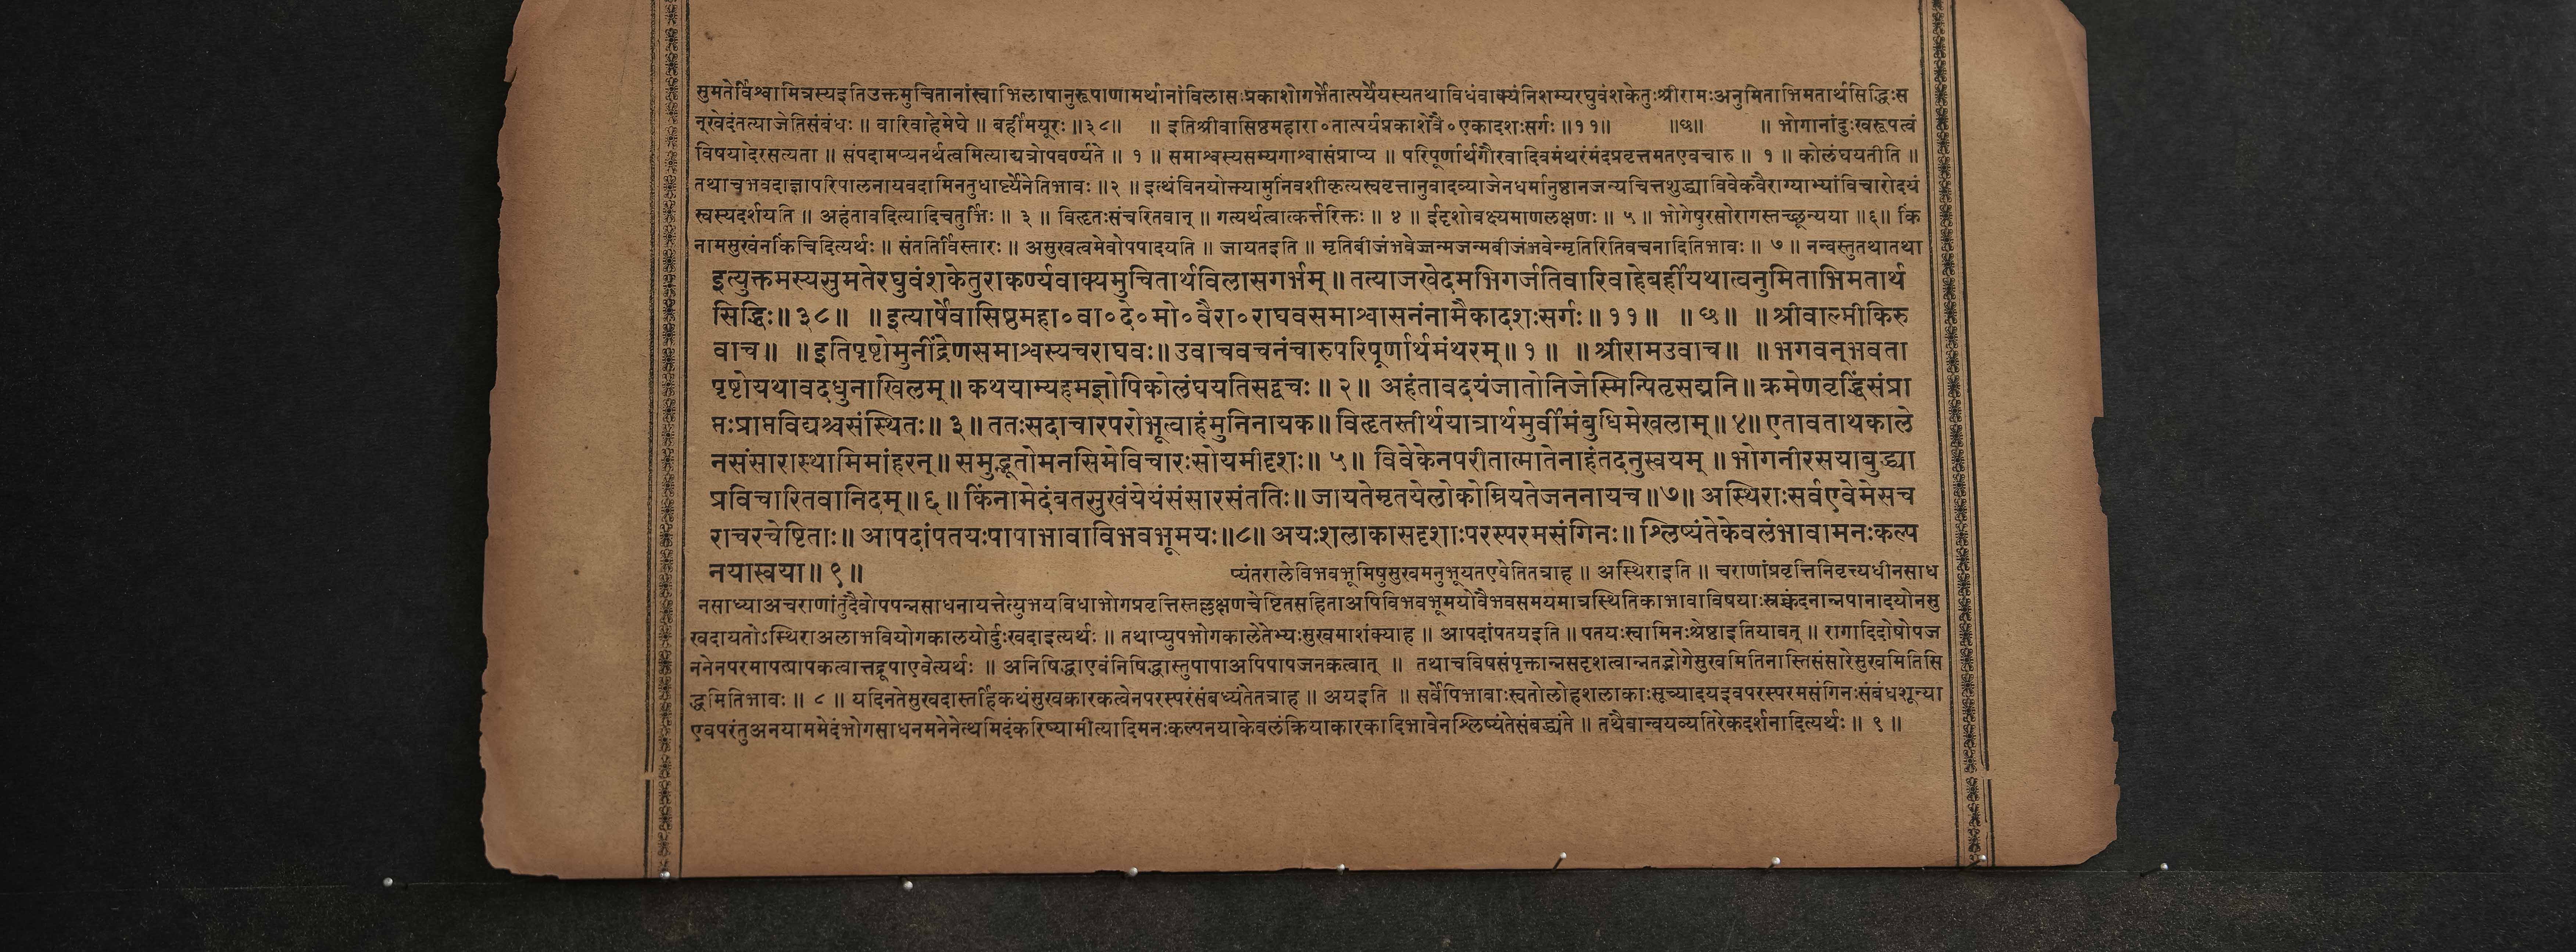 सुमतेर्विश्वामित्रस्यइतिउक्तमुचितानांस्वाभिलाषानुरूपाणामर्थानांविलासःप्रकाशोगर्भेतात्पर्येयस्यतथाविधंवाक्यंनिशम्यरघुवंशकेतुःश्रीरामःअनुमिताभिमतार्थसिद्धिःस
न्खेदंतत्याजेतिसंबंधः ॥ वारिवाहेमेघे ॥ बर्हीमयूरः ॥३८॥ ॥ इतिश्रीवासिष्ठमहारा०तात्पर्यप्रकाशेवै०एकादशःसर्गः ॥११॥ ॥छ॥ ॥ भोगानांदुःखरूपत्वं
विषयादेरसत्यता ॥ संपदामप्यनर्थत्वमित्याद्यत्रोपवर्ण्यते ॥ १ ॥ समाश्वस्यसम्यगाश्वासंप्राप्य ॥ परिपूर्णार्थगौरवादिवमंथरंमंदप्रवृत्तमतएवचारु ॥ १ ॥ कोलंघयतीति ॥
तथाचभवदाज्ञापरिपालनायवदामिनतुधार्ष्ट्येनेतिभावः ॥२ ॥ इत्थंविनयोक्त्यामुनिंवशीकृत्यस्ववृत्तानुवादव्याजेनधर्मानुष्ठानजन्यचित्तशुद्ध्याविवेकवैराग्याभ्यांविचारोदयं
स्वस्यदर्शयति ॥ अहंतावदित्यादिचतुर्भिः ॥ ३ ॥ विहृतःसंचरितवान् ॥ गत्यर्थत्वात्कर्त्तरिक्तः ॥ ४ ॥ ईदृशोवक्ष्यमाणलक्षणः ॥ ५ ॥ भोगेषुरसोरागस्तच्छून्यया ॥६॥ किं
नामसुखंनकिंचिदित्यर्थः ॥ संततिर्विस्तारः ॥ असुखत्वमेवोपपादयति ॥ जायतइति ॥ मृतिबीजंभवेज्जन्मजन्मबीजंभवेन्मृतिरितिवचनादितिभावः ॥ ७ ॥ नन्वस्तुतथातथा
इत्युक्तमस्यसुमतेरघुवंशकेतुराकर्ण्यवाक्यमुचितार्थविलासगर्भम् ॥ तत्याजखेदमभिगर्जतिवारिवाहेबर्हीयथात्वनुमिताभिमतार्थ
सिद्धिः॥ ३८॥ ॥ इत्यार्षेवासिष्ठमहा०वा०दे०मो०वैरा०राघवसमाश्वासनंनामैकादशःसर्गः॥ ११॥ ॥ छ॥ ॥ श्रीवाल्मीकिरु
वाच॥ ॥ इतिपृष्टोमुनींद्रेणसमाश्वस्यचराघवः॥ उवाचवचनंचारुपरिपूर्णार्थमंथरम्॥ १॥ ॥ श्रीरामउवाच॥ ॥ भगवन्भवता
पृष्टोयथावदधुनाखिलम्॥ कथयाम्यहमज्ञोपिकोलंघयतिसद्वचः॥ २॥ अहंतावदयंजातोनिजेस्मिन्पितृसद्मनि॥ क्रमेणवृद्धिंसंप्रा
प्तःप्राप्तविद्यश्चसंस्थितः॥ ३॥ ततःसदाचारपरोभूत्वाहंमुनिनायक॥ विहृतस्तीर्थयात्रार्थमुर्वीमंबुधिमेखलाम्॥ ४॥ एतावताथकाले
नसंसारास्थामिमांहरन्॥ समुद्भूतोमनसिमेविचारःसोयमीदृशः॥ ५॥ विवेकेनपरीतात्मातेनाहंतदनुस्वयम् ॥ भोगनीरसयाबुद्ध्या
प्रविचारितवानिदम्॥ ६॥ किंनामेदंबतसुखंयेयंसंसारसंततिः॥ जायतेमृतयेलोकोम्रियतेजननायच॥७॥ अस्थिराःसर्वएवेमेसच
राचरचेष्टिताः॥ आपदांपतयःपापाभावाविभवभूमयः॥८॥ अयःशलाकासदृशाःपरस्परमसंगिनः॥ श्लिष्यंतेकेवलंभावामनःकल्प
नयास्वया॥ ९॥ प्यंतरालेविभवभूमिषुसुखमनुभूयतएवेतितत्राह ॥ अस्थिराइति ॥ चराणांप्रवृत्तिनिवृत्त्यधीनसाध
नसाध्याअचराणांतुदैवोपपन्नसाधनायत्तेत्युभयविधाभोगप्रवृत्तिस्तल्लक्षणचेष्टितसहिताअपिविभवभूमयोवैभवसमयमात्रस्थितिकाभावाविषयाःस्रक्चंदनान्नपानादयोनसु
खदायतोऽस्थिराअलाभवियोगकालयोर्दुःखदाइत्यर्थः ॥ तथाप्युपभोगकालेतेभ्यःसुखमाशंक्याह ॥ आपदांपतयइति ॥ पतयःस्वामिनःश्रेष्ठाइतियावत् ॥ रागादिदोषोपज
ननेनपरमापत्प्रापकत्वात्तद्रूपाएवेत्यर्थः ॥ अनिषिद्धाएवंनिषिद्धास्तुपापाअपिपापजनकत्वात् ॥ तथाचविषसंपृक्तान्नसदृशत्वान्नतद्भोगेसुखमितिनास्तिसंसारेसुखमितिसि
द्धमितिभावः ॥ ८ ॥ यदिनतेसुखदास्तर्हिकथंसुखकारकत्वेनपरस्परंसंबध्यंतेतत्राह ॥ अयइति ॥ सर्वेपिभावाःस्वतोलोहशलाकाःसूच्यादयइवपरस्परमसंगिनःसंबंधशून्या
एवपरंतुअनयाममेदंभोगसाधनमनेनेत्थमिदंकरिष्यामीत्यादिमनःकल्पनयाकेवलंक्रियाकारकादिभावेनश्लिष्यंतेसंबद्ध्यंते ॥ तथैवान्वयव्यतिरेकदर्शनादित्यर्थः ॥ ९ ॥